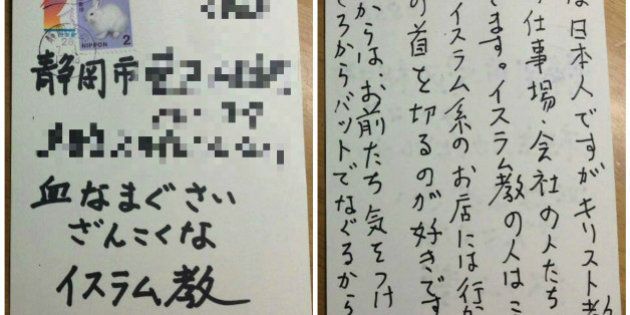 2
NIPPON
静岡市
血なまぐさい
ざんこくな
イスラム教
日本人ですがキリスト教
仕事場・会社の人たち
ます。イスラム教の人はこ
イスラム系のお店には行か
の首を切るのが好きです
からは、お前たち気をつけ
ろからバットでなぐるから